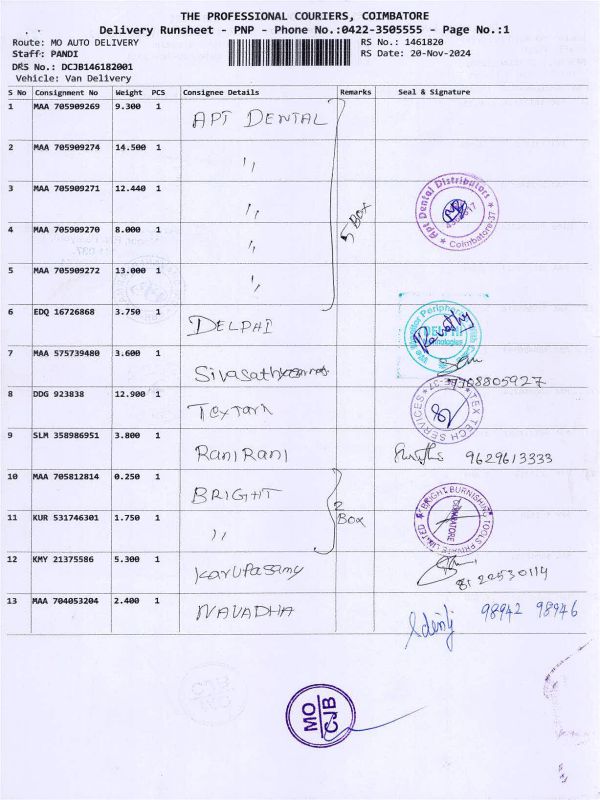 THE PROFESSIONAL COURIERS, COIMBATORE
Delivery Runsheet - PNP - Phone No.:0422-3505555 - Page No.:1
Route: MO AUTO DELIVERY RS No.: 1461820
Staff: PANDI RS Date: 20-Nov-2024
DRS No.: DCJB146182001
Vehicle: Van Delivery
S No Consignment No Weight PCS Consignee Details Remarks Seal & Signature
1 MAA 705909269 9.300 1 APT DENTAL
2 MAA 705909274 14.500 1 ,,
3 MAA 705909271 12.440 1 ,, 5 BOX Apt Dental Distributors * Coimbatore-37 *
4 MAA 705909270 8.000 1 ,,
5 MAA 705909272 13.000 1 ,,
6 EDQ 16726868 3.750 1 DELPHI DELPHI Technologies
7 MAA 575739480 3.600 1 9708805927
8 DDG 923838 12.900 1 TEX TECH SERVICES
9 SLM 358986951 3.800 1 RANI RANI 9629613333
10 MAA 705812814 0.250 1 BRIGHT 2 BOX BRIGHT BURNISHING TOOLS PRIVATE LIMITED COIMBATORE
11 KUR 531746301 1.750 1 ,,
12 KMY 21375586 5.300 1 Karupasamy 8122530114
13 MAA 704053204 2.400 1 NAVADHA 98942 98946
MO
CJB